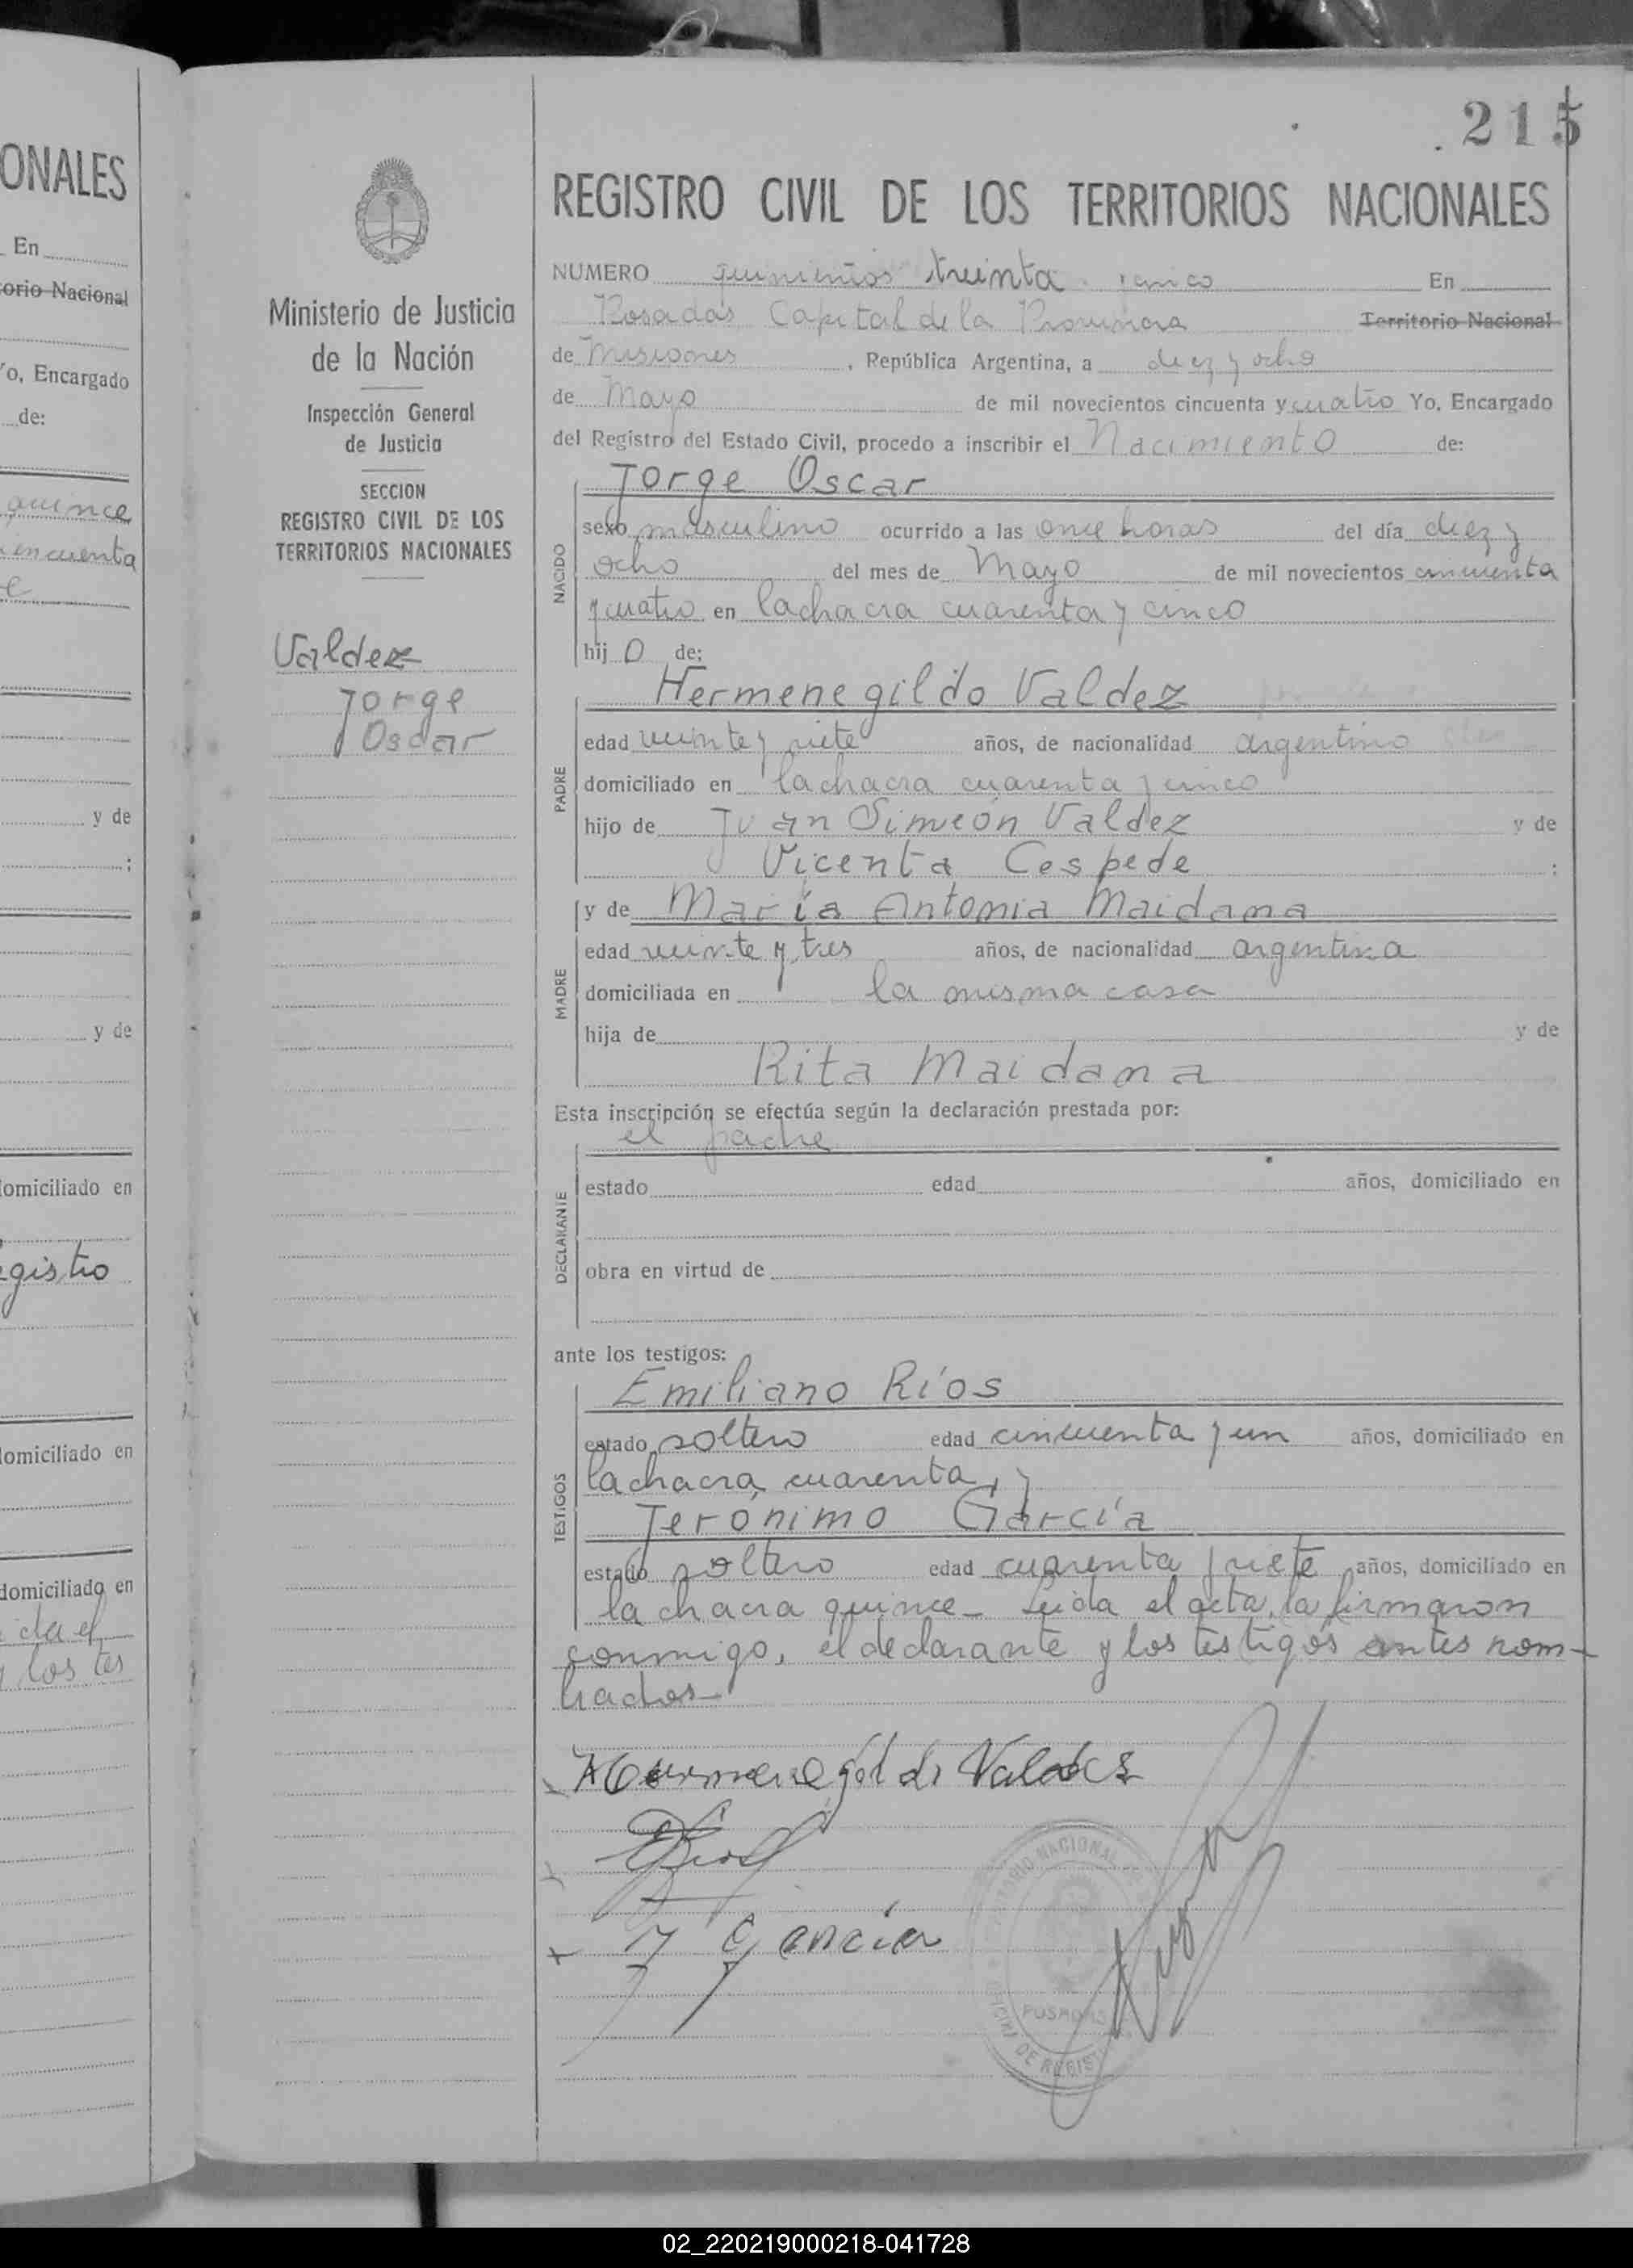 ONALES
En
orio Nacional
o, Encargado
de:
quince
cincuenta
e
y de
;
y de
domiciliado en
egistro
domiciliado en
domiciliado en
ida el
y los tes
Ministerio de Justicia
de la Nación
Inspección General
de Justicia
SECCION
REGISTRO CIVIL DE LOS
TERRITORIOS NACIONALES
Valdez
Jorge
Oscar
215
REGISTRO CIVIL DE LOS TERRITORIOS NACIONALES
NUMERO quinientos treinta y cinco En
Posadas Capital de la Provincia Territorio Nacional
de Misiones, República Argentina, a diez y ocho
de Mayo de mil novecientos cincuenta y cuatro Yo, Encargado
del Registro del Estado Civil, procedo a inscribir el Nacimiento de:
Jorge Oscar
NACIDO
sexo masculino ocurrido a las once horas del día diez y
ocho del mes de Mayo de mil novecientos cincuenta
y cuatro en la chacra cuarenta y cinco
hijo de:
Hermenegildo Valdez
PADRE
edad veinte y siete años, de nacionalidad argentino
domiciliado en la chacra cuarenta y cinco
hijo de Juan Simeón Valdez y de
Vicenta Cespede ;
y de María Antonia Maidana
MADRE
edad veinte y tres años, de nacionalidad argentina
domiciliada en la misma casa
hija de y de
Rita Maidana
Esta inscripción se efectúa según la declaración prestada por:
el padre
DECLARANTE
estado edad años, domiciliado en
obra en virtud de
ante los testigos:
Emiliano Ríos
TESTIGOS
estado soltero edad cincuenta y un años, domiciliado en
la chacra cuarenta, y
Jerónimo García
estado soltero edad cuarenta y siete años, domiciliado en
la chacra quince- Leida el acta, la firmaron
conmigo, el declarante y los testigos antes nom-
brados-
Hermenegildo Valdez
ERios
J García
POSADAS
02_220219000218-041728